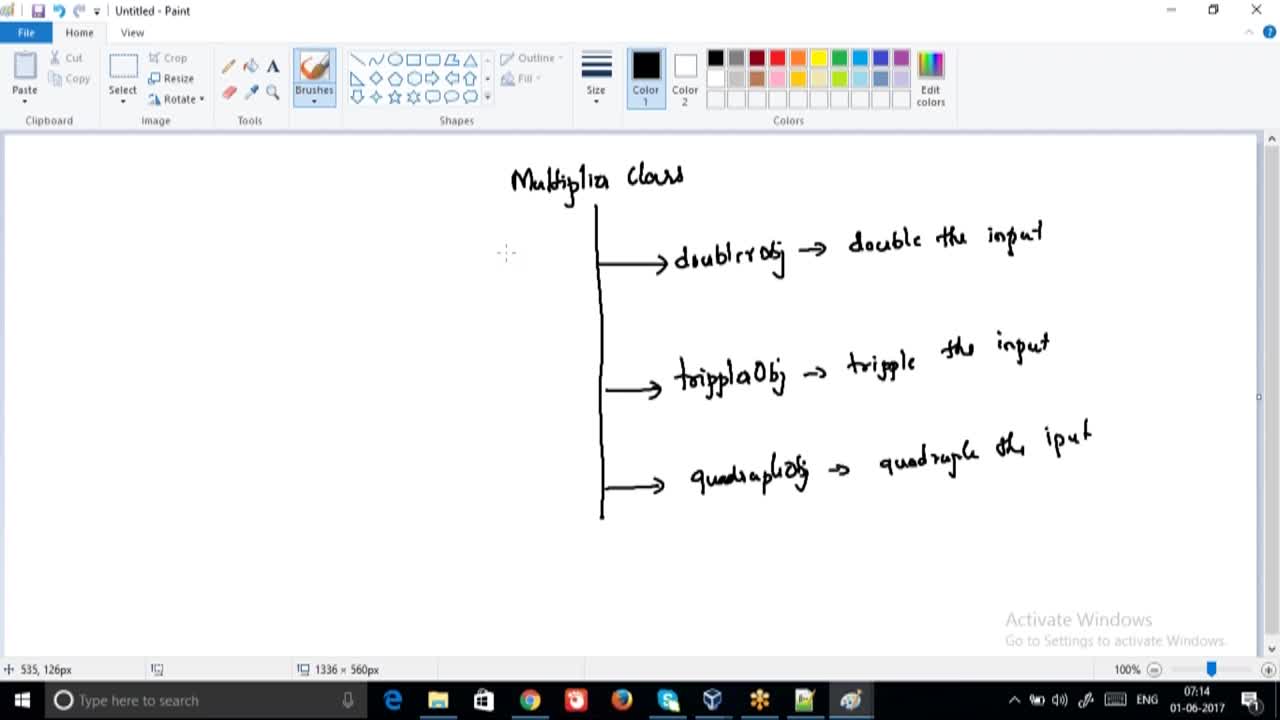 Untitled - Paint
File Home View
Paste Cut Copy Clipboard
Select Crop Resize Rotate Image
Tools
Brushes
Outline Fill Shapes
Size
Color 1 Color 2 Edit colors Colors
Multiplier Class
doublerObj → double the input
tripplerObj → tripple the input
quadrapleObj → quadraple the iput
Activate Windows
Go to Settings to activate Windows.
535, 126px 1336 × 560px 100%
Type here to search ENG 07:14 01-06-2017